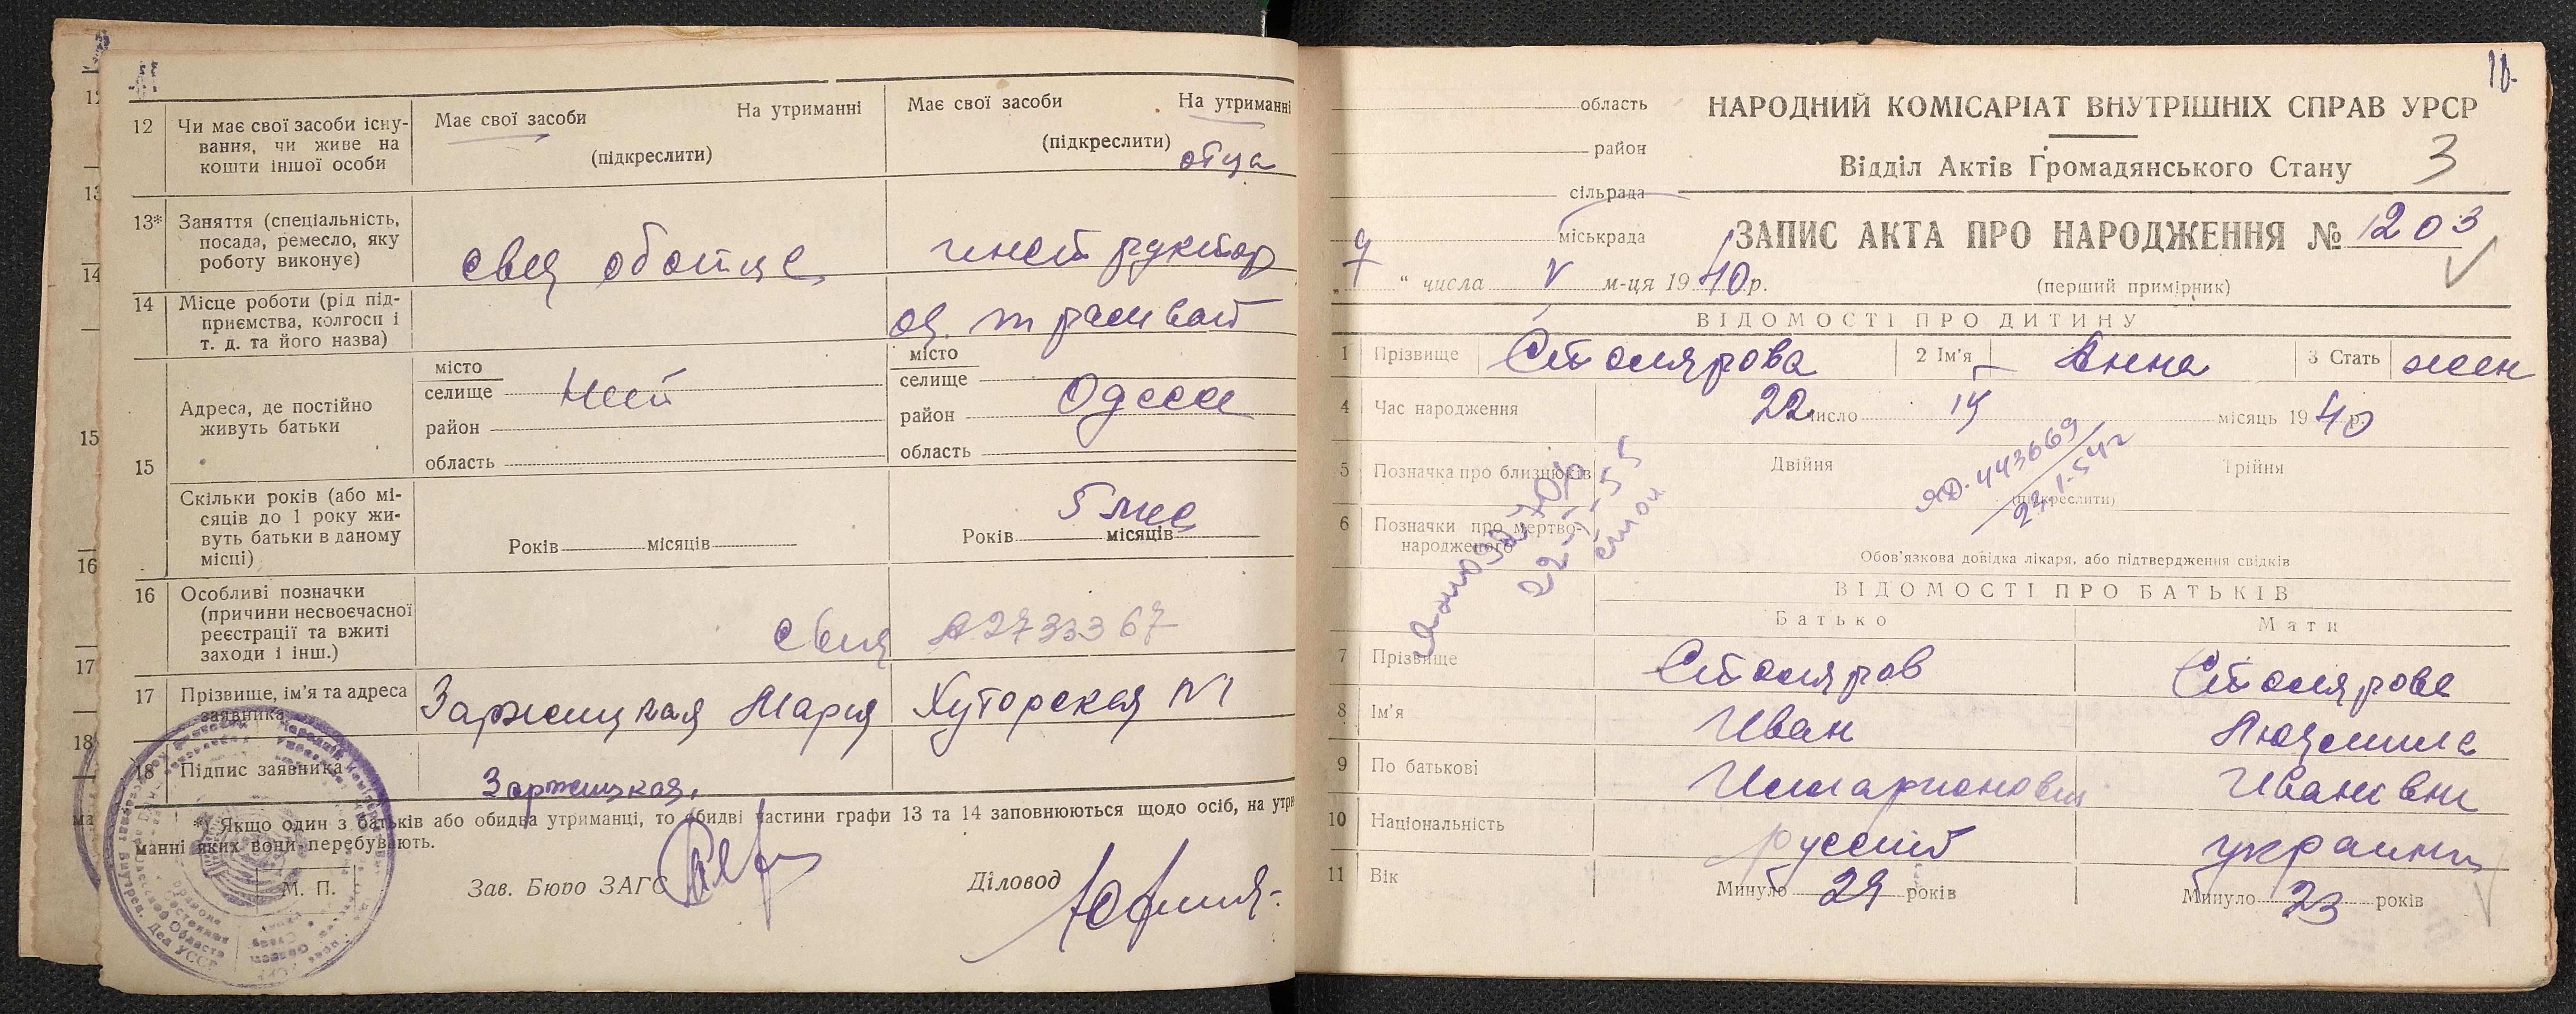 11
12 Чи має свої засоби існу-
вання, чи живе на
кошти іншої особи
Має свої засоби На утриманні
(підкреслити)
Має свої засоби На утриманні
(підкреслити)
отца
13* Заняття (спеціальність,
посада, ремесло, яку
роботу виконує)
инструктор
14 Місце роботи (рід під-
приємства, колгосп і
т. д. та його назва)
од. трамвай
15 Адреса, де постійно
живуть батьки
місто
селище
район
область
місто
селище
район Одесса
область
Скільки років (або мі-
сяців до 1 року жи-
вуть батьки в даному
місці)
Років місяців
5 мес
Років місяців
16 Особливі позначки
(причини несвоєчасної
реєстрації та вжиті
заходи і інш.)
2733367
17 Прізвище, ім'я та адреса
заявника
Заржицкая Мария Хуторская №1
18 Підпис заявника
Заржицкая
*) Якщо один з батьків або обидва утриманці, то обидві частини графи 13 та 14 заповнюються щодо осіб, на утри
манні яких вони перебувають.
М. П.
Зав. Бюро ЗАГС
Діловод
10.
область
район
сільрада
міськрада
НАРОДНИЙ КОМІСАРІАТ ВНУТРІШНІХ СПРАВ УРСР
Відділ Актів Громадянського Стану 3
ЗАПИС АКТА ПРО НАРОДЖЕННЯ № 1203
„ 9 “ числа V м-ця 1940 р.
(перший примірник)
ВІДОМОСТІ ПРО ДИТИНУ
1 Прізвище Столярова 2 Ім'я Анна 3 Стать жен
4 Час народження 22 число IV місяць 1940 р.
5 Позначка про близнюків Двійня Трійня
(підкреслити)
ЯО. 443669
23.1.54 г
6 Позначки про мертво-
народженого
Обов'язкова довідка лікаря, або підтвердження свідків
ВІДОМОСТІ ПРО БАТЬКІВ
Батько Мати
7 Прізвище Столяров Столярова
8 Ім'я Иван Людмила
9 По батькові Илларионович Ивановна
10 Національність русский украинка
11 Вік Минуло 29 років Минуло 23 років